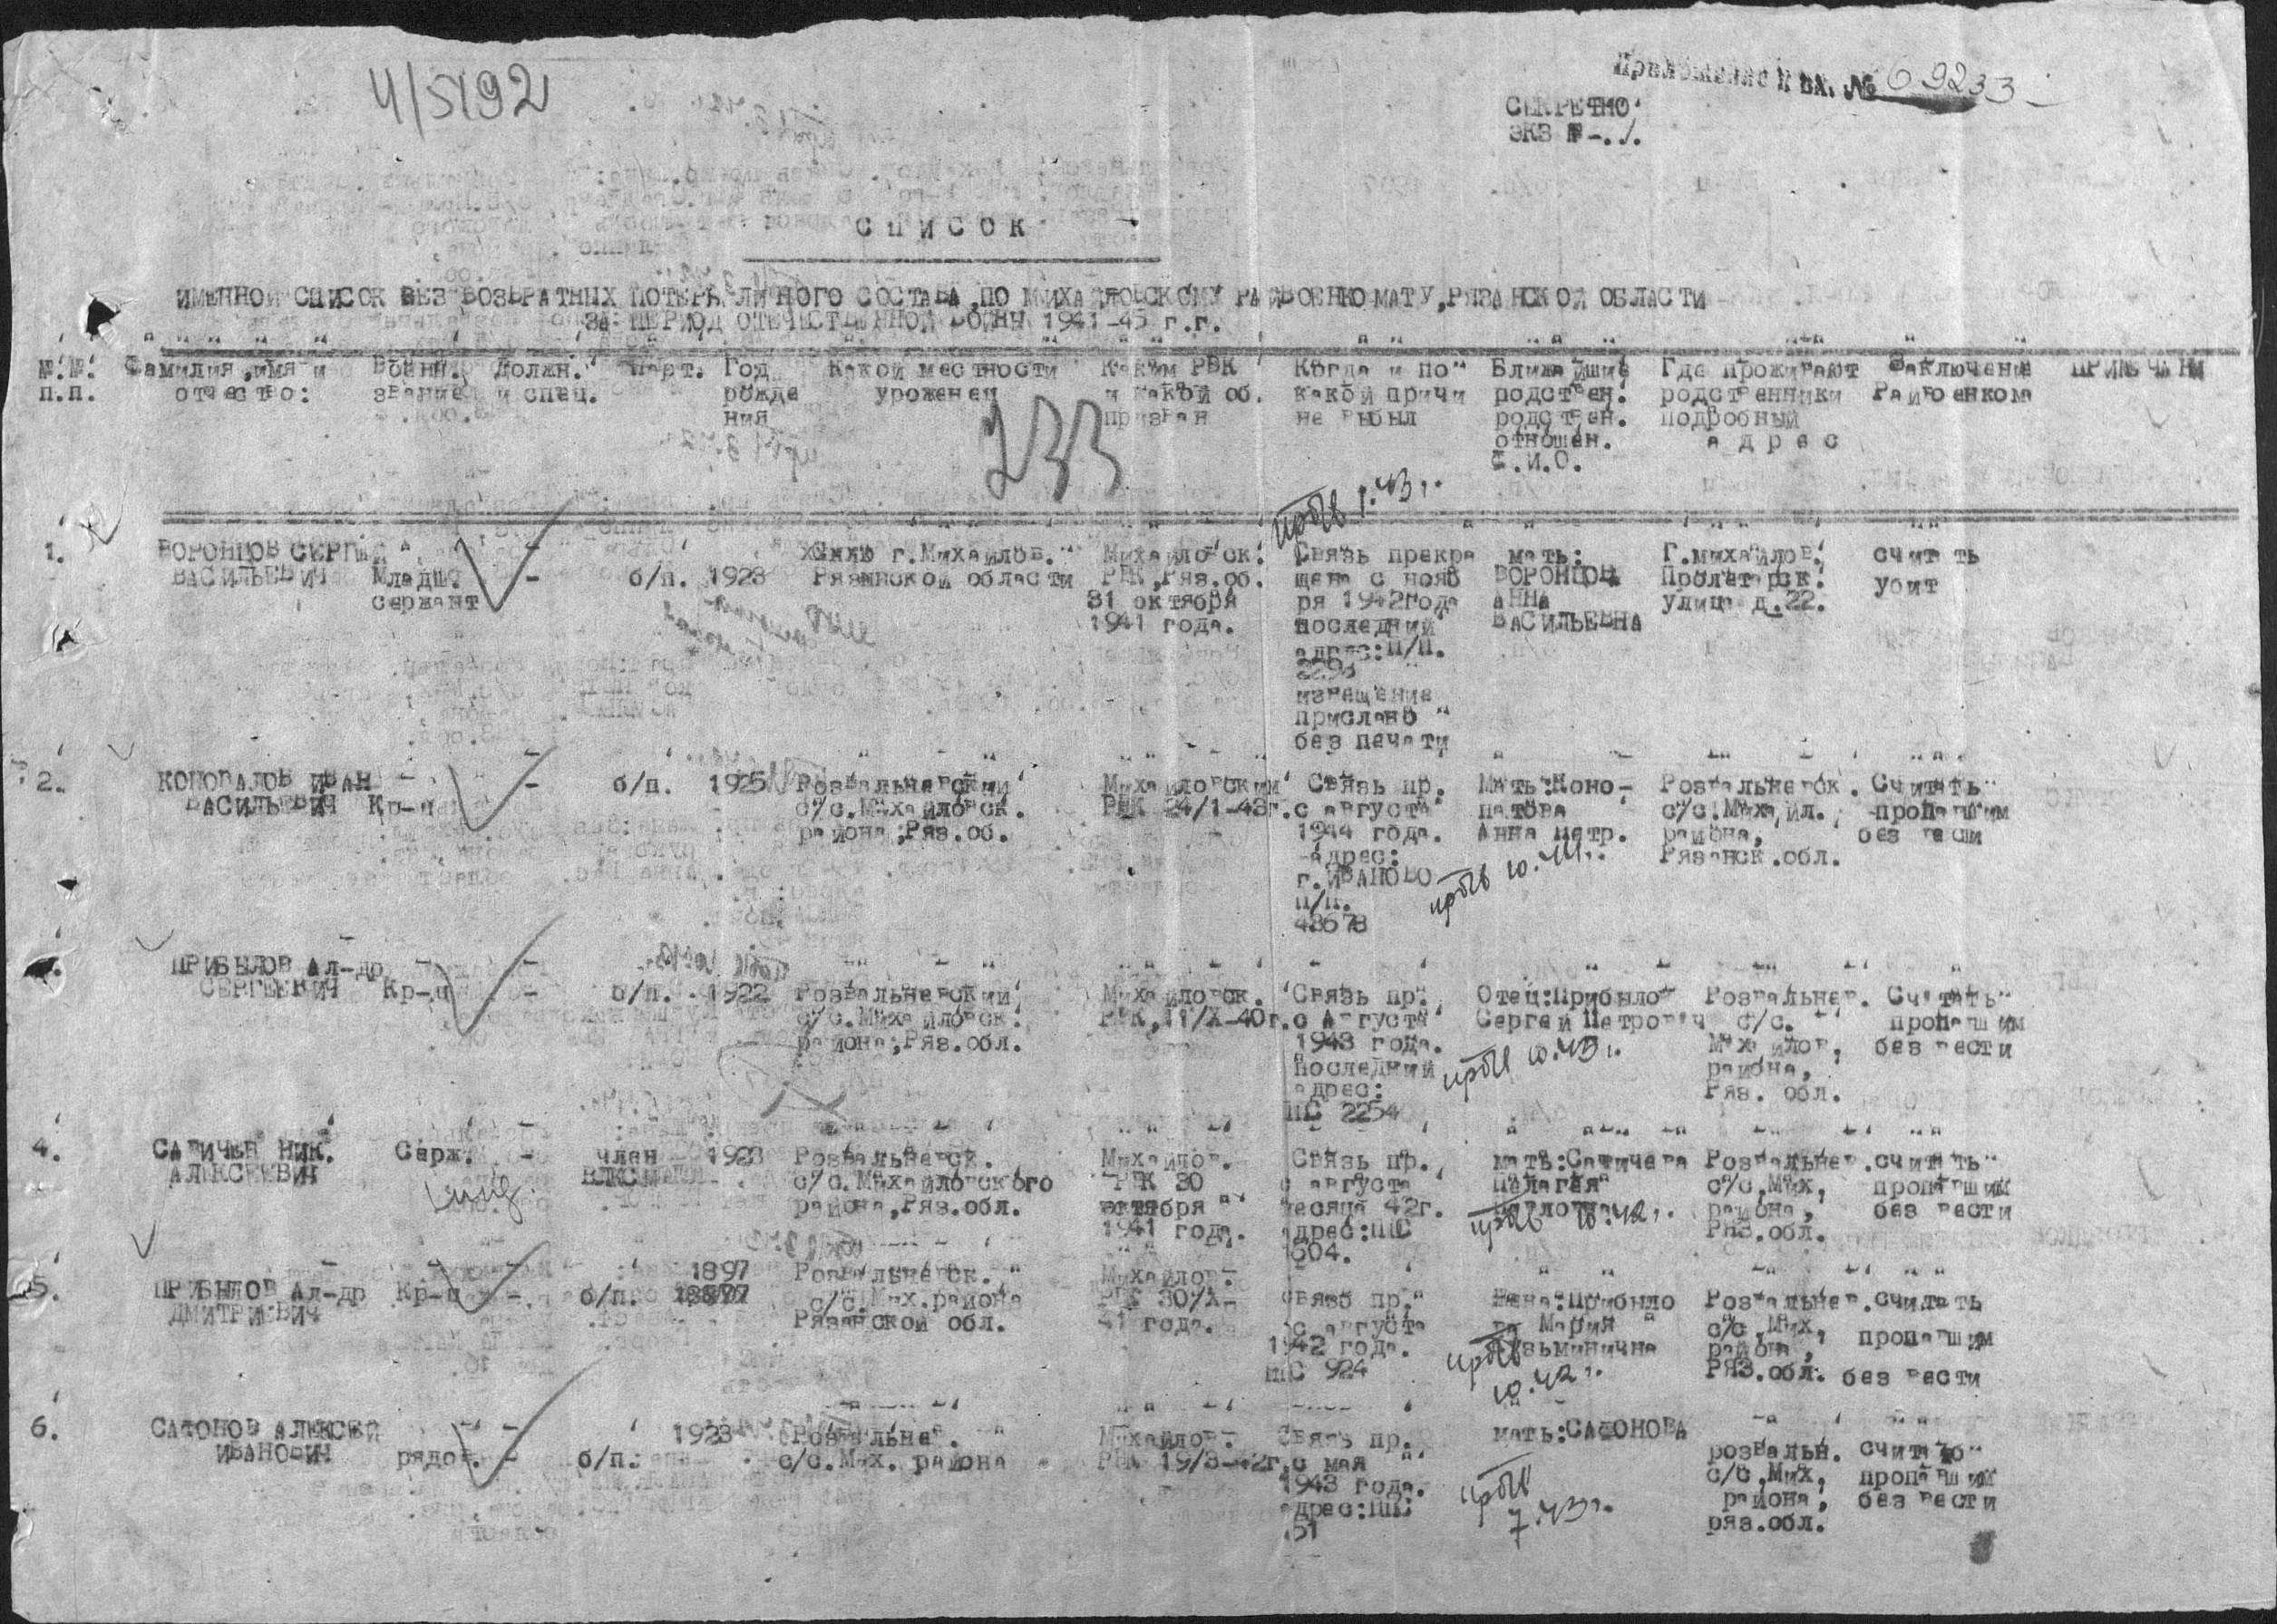 4/5192
Приложение к вх. № 69233
СЕКРЕТНО
ЭКЗ № -.1.
С П И С О К
ИМЕННОЙ СПИСОК БЕЗВОЗВРАТНЫХ ПОТЕРЬ ЛИЧНОГО СОСТАВА, ПО МИХАЙЛОВСКОМУ РАЙВОЕНКОМАТУ, РЯЗАНСКОЙ ОБЛАСТИ
ЗА ПЕРИОД ОТЕЧЕСТВЕННОЙ ВОЙНЫ 1941-45 г.г.
№.№. Фамилия, имя и Воен. Должн. Парт. Год Какой местности Каким РВК Когда и по Ближайшие Где проживают Заключение ПРИМЕЧАНИ
п.п. отчество: звание и спец. рожде уроженец и какой об. какой причи родствен. родственники Райвоенкома
ния призван не выбыл родствен. подробный
отношен. а д р е с
Ф.И.О.
233
проп 1.43 г.
1. ВОРОНЦОВ СЕРГЕЙ г.Михайлов. Михайловск. Связь прекра мать: Г.Михайлов. считать
ВАСИЛЬЕВИЧ Младш. - б/п. 1923 Рязанской области РВК, Ряз.об. щена с нояб ВОРОНЦОВА Пролетарск. убит
сержант 31 октября ря 1942года АННА улица д.22.
1941 года. последний ВАСИЛЬЕВНА
адрес: П/П.
извещение
прислано
без печати
2. КОНОВАЛОВ ИВАН - б/п. 1925 Розвальневский Михайловский Связь пр. Мать:Коно- Розвальневск. Считать
ВАСИЛЬЕВИЧ Кр-ц с/с.Михайловск. РВК 24/1-43г. с августа с/с.Михайл. пропавшим
района, Ряз.об. 1944 года. Анна Петр. района, без вести
адрес: Рязанск.обл.
г.ИВАНОВО проп 10.44 г.
п/п.
43678
ПРИБЫЛОВ Ал-др
СЕРГЕЕВИЧ Кр-ц - б/п. 1922 Розвальневский Михайловск. Связь пр. Отец:Прибылов Розвальнев. Считать
с/с.Михайловск. РВК, 11/X-40г. с Августа Сергей Петрович с/с. пропавшим
района, Ряз.обл. 1943 года. проп 10.43 г. Михайлов, без вести
последний района,
адрес: Ряз. обл.
ППС 2254
4. САВИЧЕВ НИК. Серж. - член 1923 Розвальневск. Михайлов. Связь пр. мать:Савичева Розвальнев. считать
АЛЕКСЕЕВИЧ ВЛКСМ с/с.Михайловского РВК 30 с августа Пелагея с/с,Мих, пропавшим
района,Ряз.обл. октября месяца 42г. проп 10.42 г. района, без вести
1941 года. адрес:ППС РЯЗ.обл.
604.
1897
5. ПРИБЫЛОВ Ал-др Кр-ц - б/п. Розвальневск. Михайлов. Связь пр. Жена:Прибыло Розвальнев. считать
ДМИТРИЕВИЧ с/с. Мих.района РВК 30/X- с августа ва Мария с/с,Мих, пропавшим
Рязанской обл. 41 года. 1942 года. Кузьминична района,
ППС 924 проп 10.42 г. РЯЗ.обл. без вести
6. САФОНОВ АЛЕКСЕЙ 1923 Розвальнев. Михайлов. Связь пр. мать:САФОНОВА розвальн. считать
ИВАНОВИЧ рядов. - б/п. с/с.Мих. района РВК 19/3-42г. с мая с/с,Мих, пропавшим
1943 года. проп района, без вести
адрес:ППС 7.43 г. ряз.обл.
51